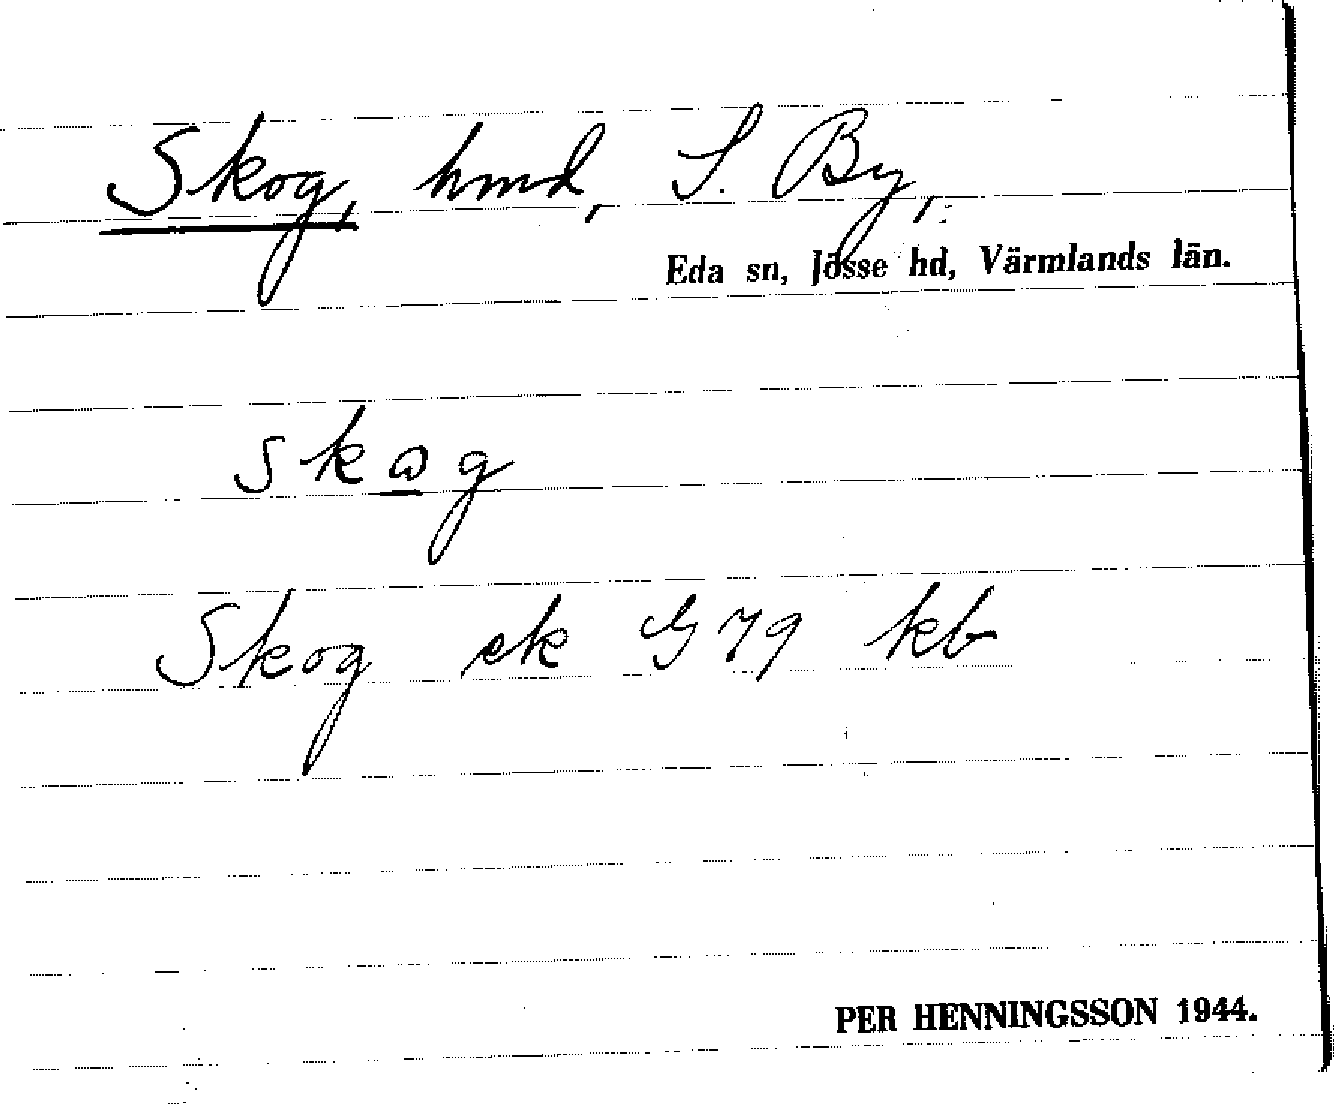 Skog, hmd, S. By,
Eda sn, Jösse hd, Värmlands län.
skωg
Skog ek G 79 kb
PER HENNINGSSON 1944.